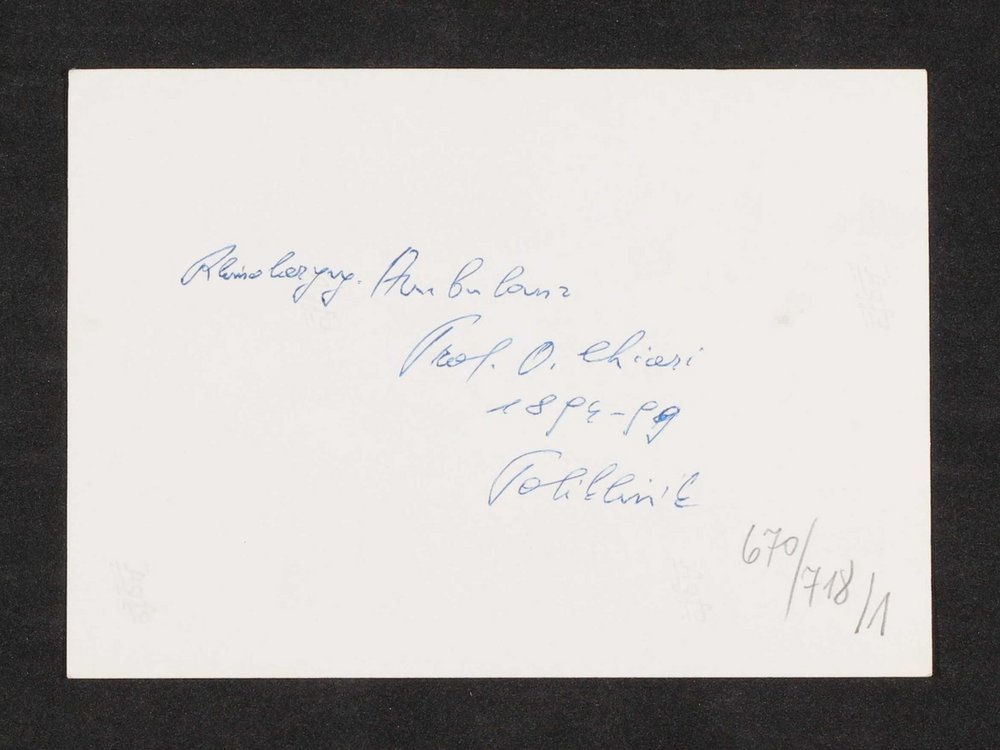 Rhinolaryng. Ambulanz
Prof. O. Chiari
1894-99
Poliklinik
670/718/1